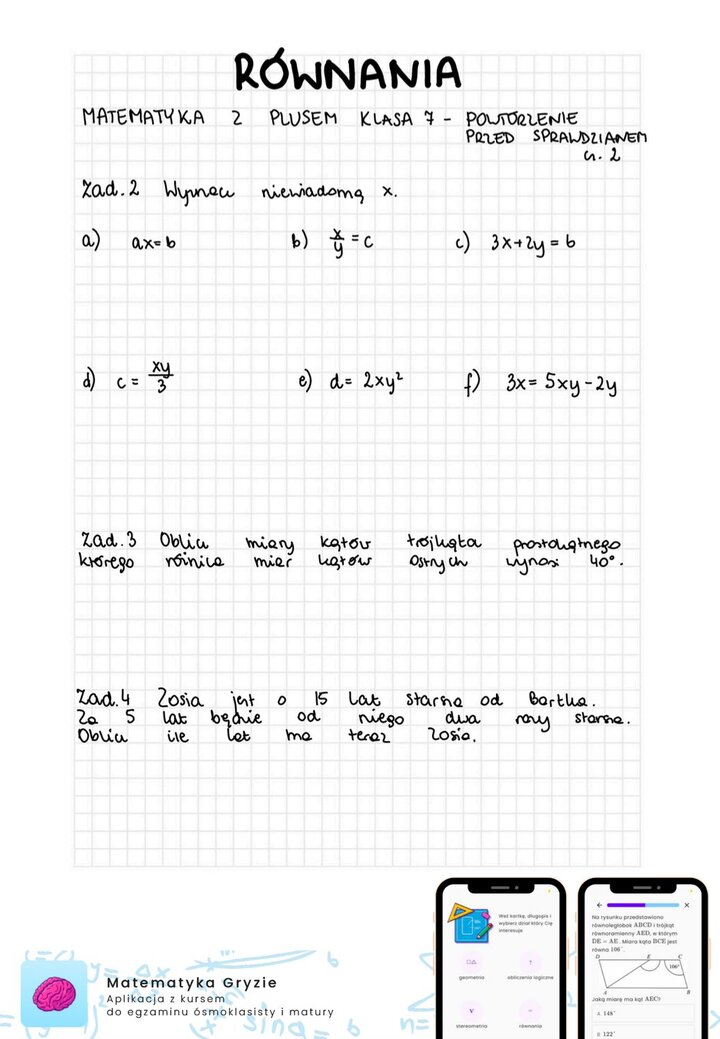 RÓWNANIA
MATEMATYKA Z PLUSEM KLASA 7 - POWTÓRZENIE
PRZED SPRAWDZIANEM
cz. 2
Zad. 2 Wyznacz niewiadomą x.
a) ax=b b) x/y = c c) 3x+2y = b
d) c = xy/3 e) d = 2xy² f) 3x = 5xy - 2y
Zad. 3 Oblicz miary kątów trójkąta prostokątnego
którego różnica miar kątów ostrych wynosi 40°.
Zad. 4 Zosia jest o 15 lat starsza od Bartka.
Za 5 lat będzie od niego dwa razy starsza.
Oblicz ile lat ma teraz Zosia.
Matematyka Gryzie
Aplikacja z kursem
do egzaminu ósmoklasisty i matury
Weź kartkę, długopis i
wybierz dział który Cię
interesuje
geometria obliczenia logiczne
stereometria równania
Na rysunku przedstawiono
równoległobok ABCD i trójkąt
równoramienny AED, w którym
DE = AE. Miara kąta BCE jest
równa 106°.
D E C
106°
A B
Jaką miarę ma kąt AEC?
A. 148°
B. 122°